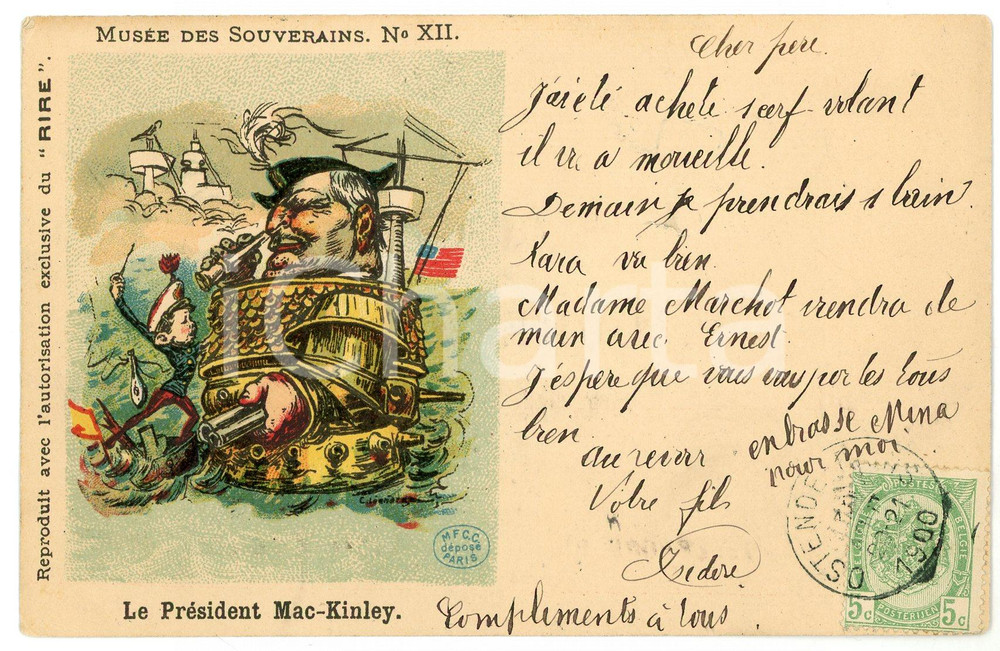 MUSÉE DES SOUVERAINS. No XII.
Reproduit avec l'autorisation exclusive du "RIRE".
M.F.C.C.
déposé
PARIS
Le Président Mac-Kinley.
Cher pere.
J'ai été acheté scerf volant
il va a merveille.
Demain je prendrais 1 bain.
Kara va bien
Madame Marchot viendra de
main avec Ernest.
J'éspere que vous vous portes tous
bien
au revoir
enbrasse Nina
pour moi
Votre fils
Isidore
Complements à tous
OSTENDE
1900
BELGIQUE
POSTES
BELGIE
5c
POSTERIJEN
5c